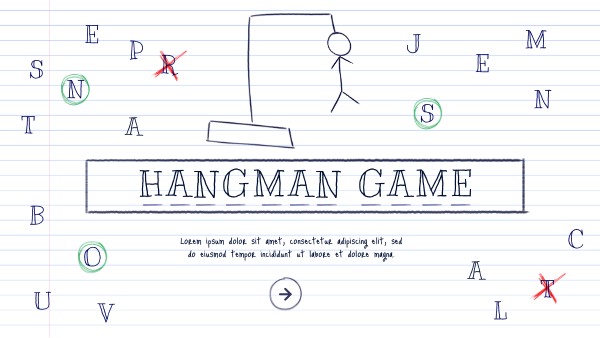 E
P
R
S
N
T
A
J
E
M
N
S
HANGMAN GAME
Lorem ipsum dolor sit amet, consectetur adipiscing elit, sed
do eiusmod tempor incididunt ut labore et dolore magna.
B
O
U
V
C
A
T
L